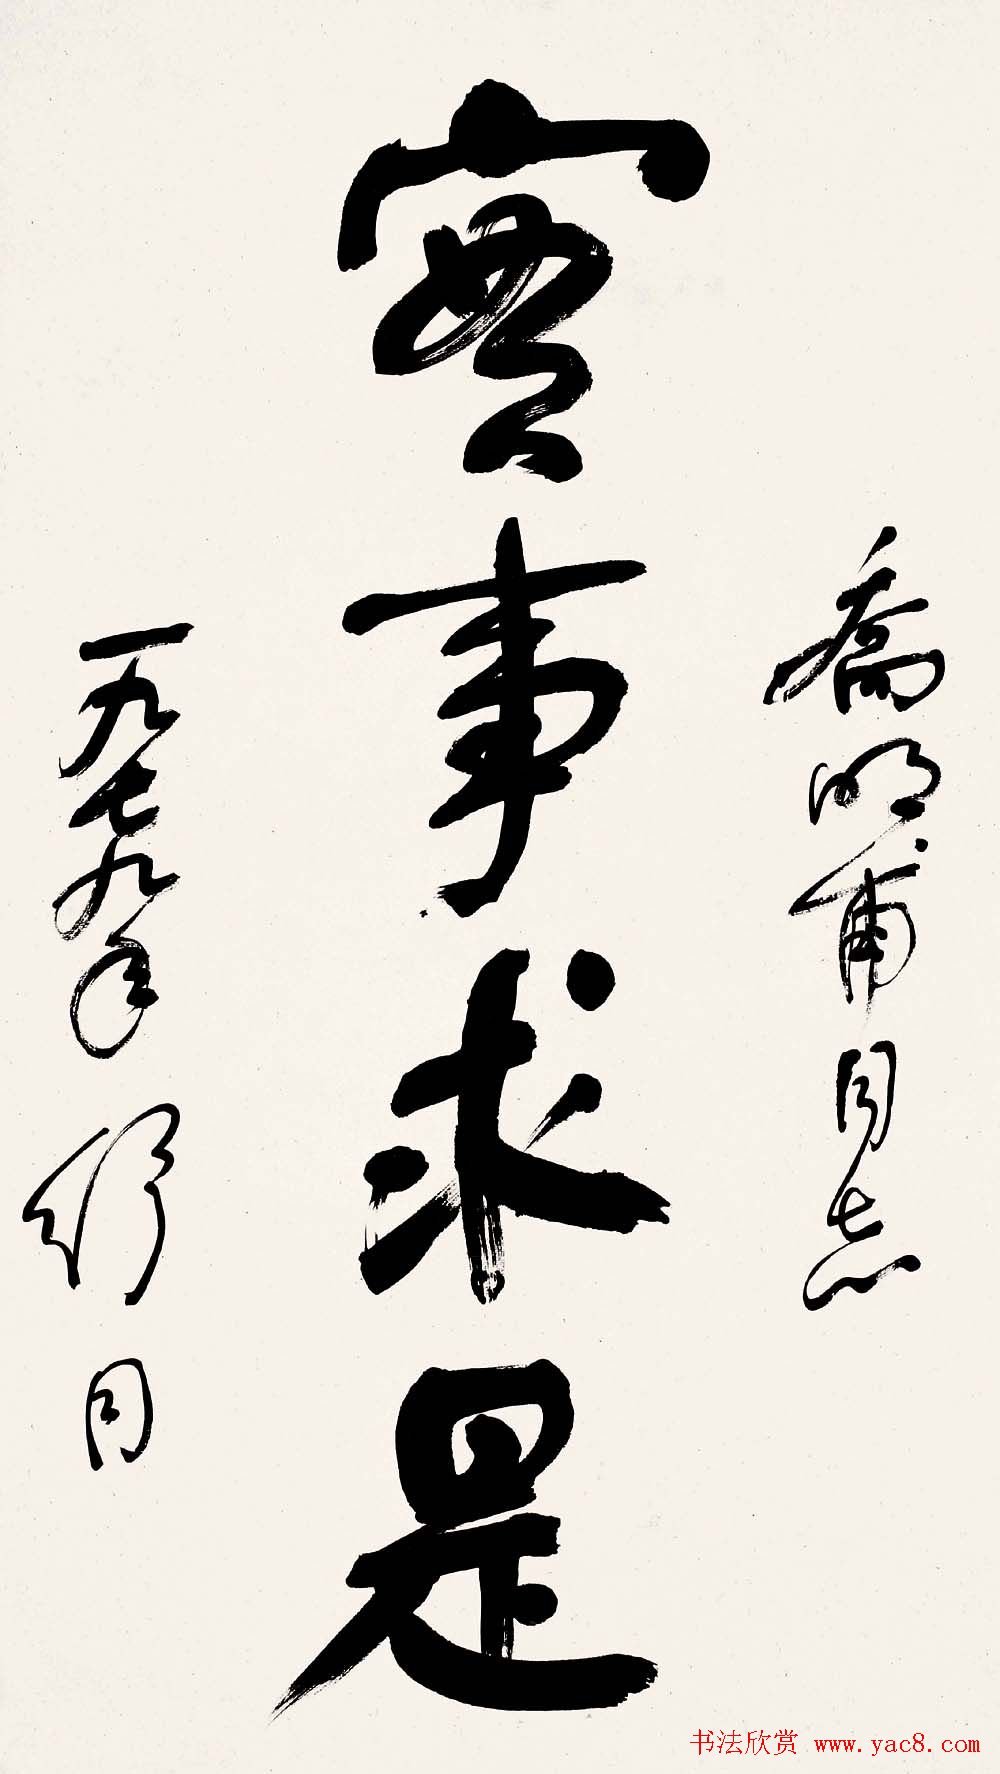 喬明甫同志
實事求是
一九七九年 舒同
书法欣赏 www.yac8.com